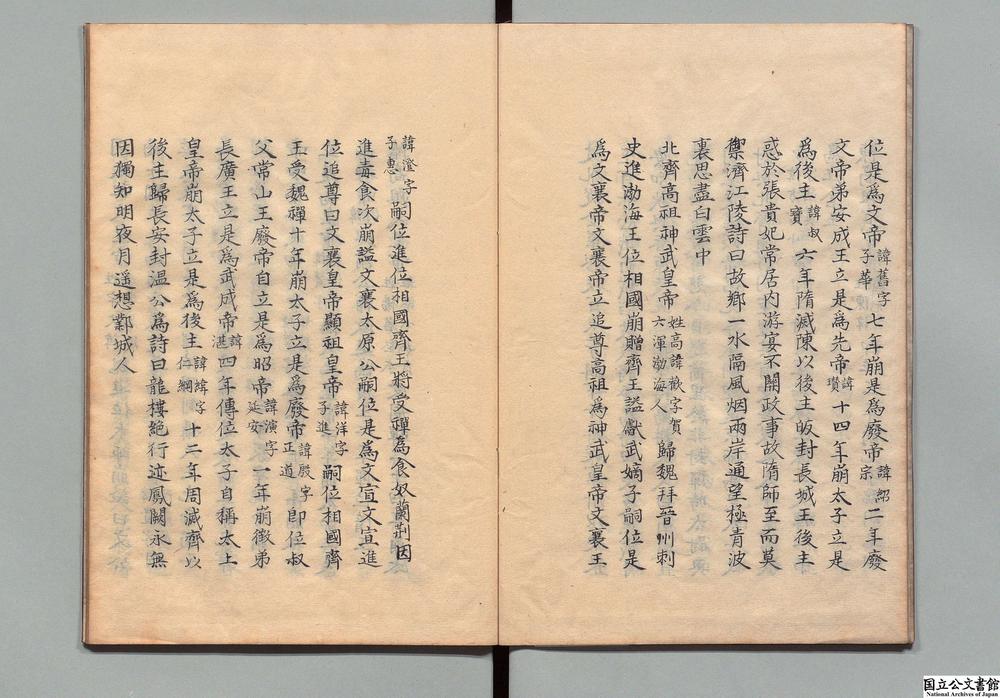 位是為文帝諱舊字子華七年崩是為廢帝諱紹宗二年廢
文帝弟安成王立是為先帝諱瓚十四年崩太子立是
為後主諱叔寶六年隋滅陳以後主皈封長城王後主
惑於張貴妃常居内游宴不關政事故隋師至而莫
禦濟江陵詩曰故鄉一水隔風烟兩岸通望極青波
裏思盡白雲中
北齊高祖神武皇帝姓高諱歡字賀六渾渤海人歸魏拜晉州刺
史進渤海王位相國崩贈齊王謚獻武嫡子嗣位是
為文襄帝文襄帝立追尊高祖為神武皇帝文襄王
諱澄字子惠嗣位進位相國齊王將受禪為食奴蘭荆因
進毒食次崩謚文襄太原公嗣位是為文宣文宣進
位追尊曰文襄皇帝顯祖皇帝諱洋字子進嗣位相國齊
王受魏禪十年崩太子立是為廢帝諱殷字正道即位叔
父常山王廢帝自立是為昭帝諱演字延安一年崩徴弟
長廣王立是為武成帝諱湛四年傳位太子自稱太上
皇帝崩太子立是為後主諱緯字仁綱十二年周滅齊以
後主歸長安封溫公為詩曰龍樓絶行迹鳳闕永無
因獨知明夜月遥想鄴城人
国立公文書館
National Archives of Japan